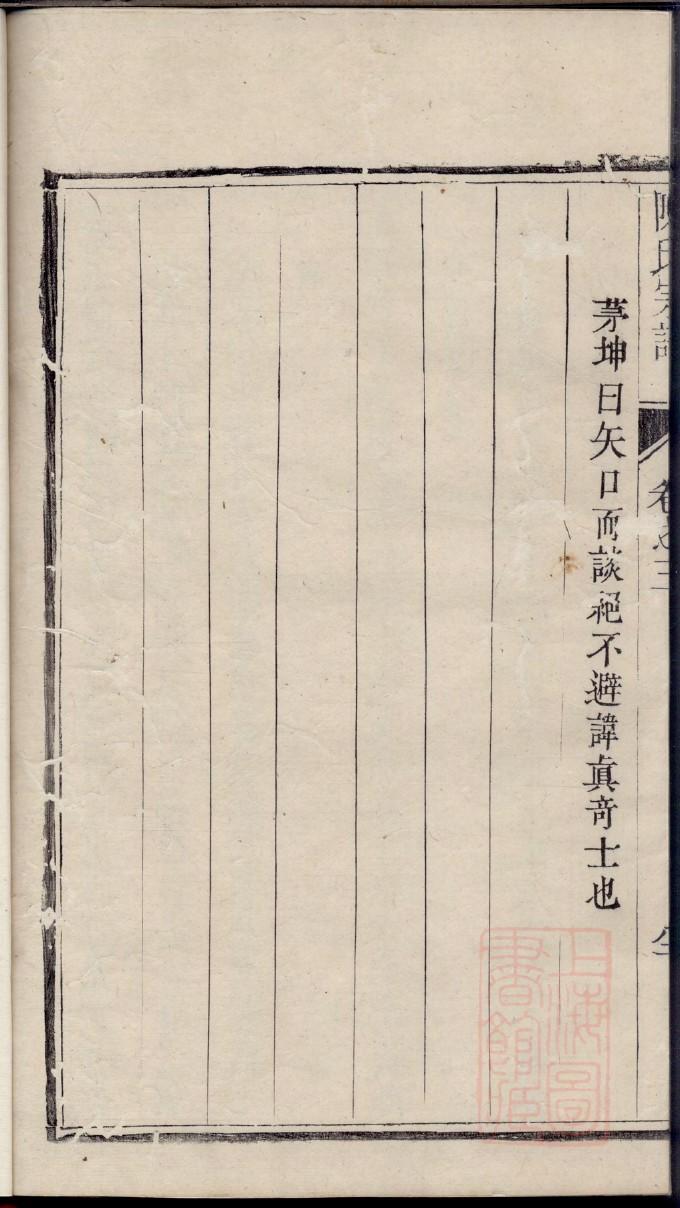 陳氏宗譜
卷之三
茅坤曰矢口而談絕不避諱真竒士也
上海圖書館藏